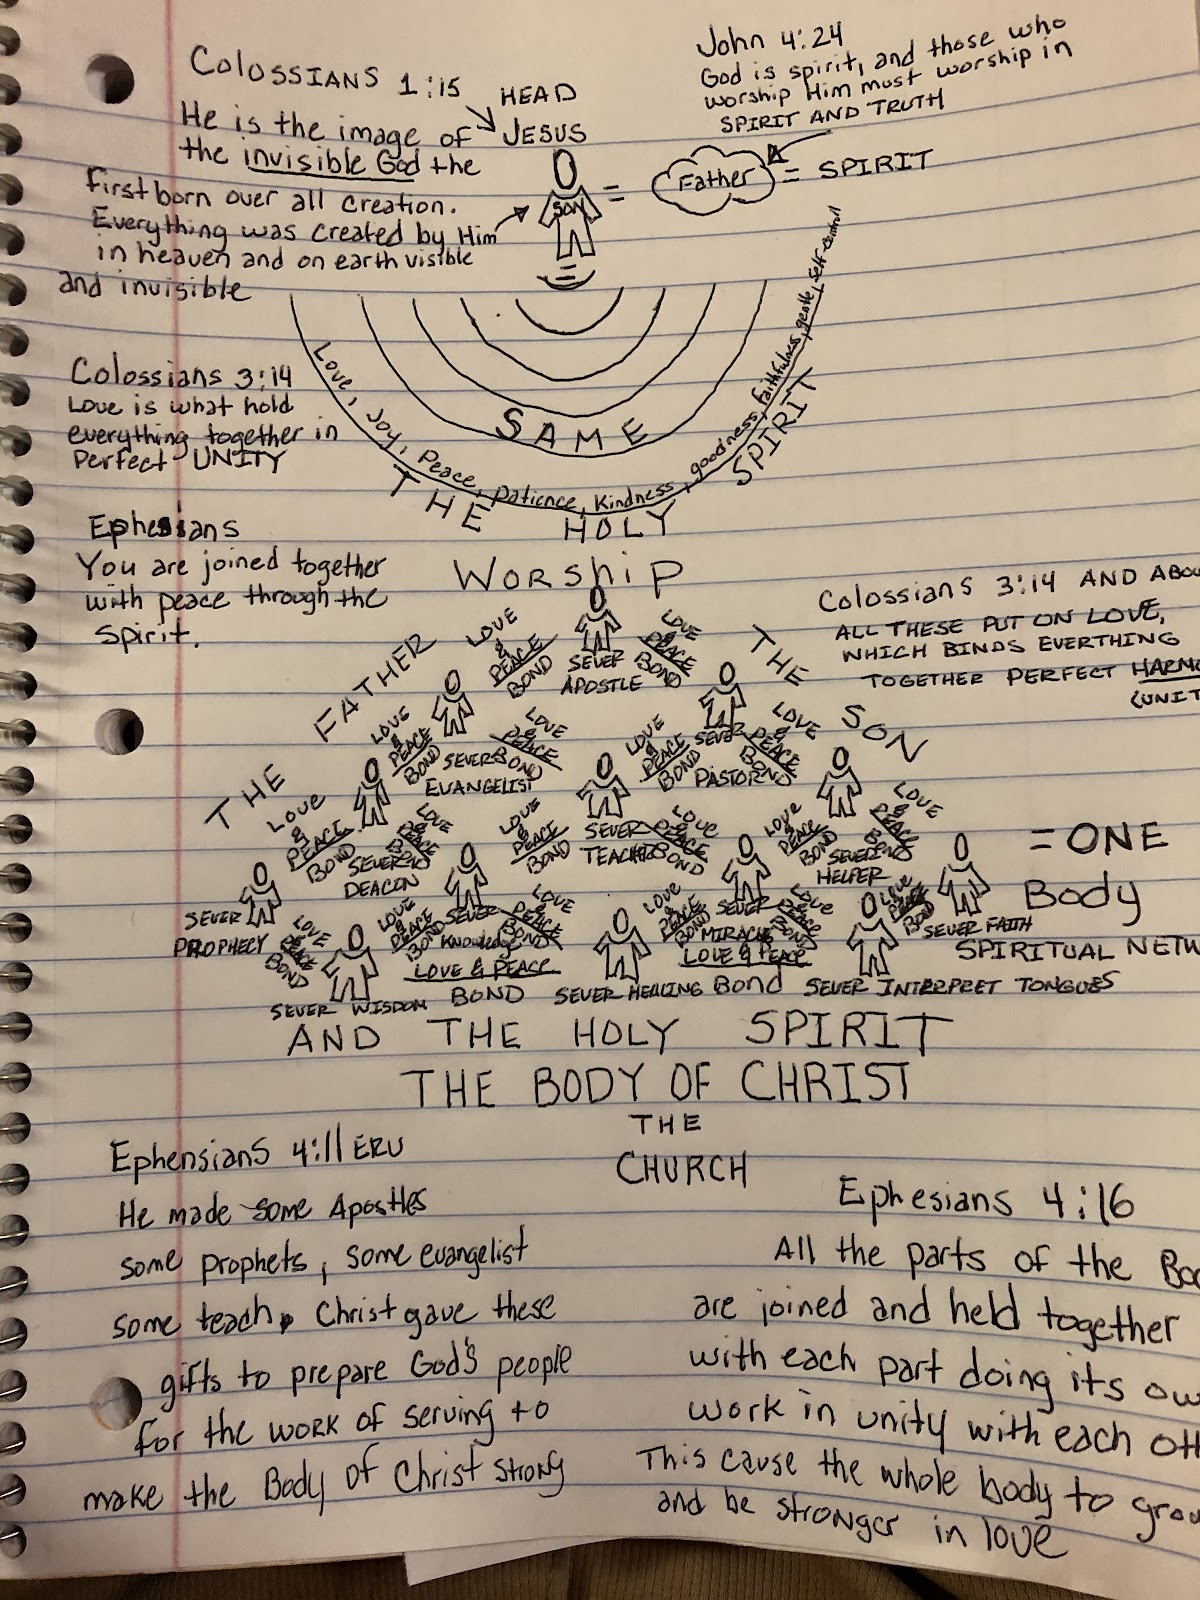 Colossians 1:15
He is the image of
the invisible God the
first born over all creation.
Everything was created by Him
in heaven and on earth visible
and invisible
HEAD
JESUS
SON
=
=
John 4:24
God is spirit, and those who
worship Him must worship in
SPIRIT AND TRUTH
Father = SPIRIT
Colossians 3:14
Love is what hold
everything together in
Perfect UNITY
SAME
Love, Joy, Peace, Patience, Kindness, goodness, faithfulness, gentle, self-control
THE HOLY SPIRIT
Ephesians
You are joined together
with peace through the
Spirit.
Worship
Colossians 3:14 AND ABO
ALL THESE PUT ON LOVE,
WHICH BINDS EVERTHING
TOGETHER PERFECT HARM
(UNIT
THE FATHER
THE SON
LOVE
&
PEACE
BOND
SEVER
APOSTLE
LOVE
&
PEACE
BOND
LOVE
&
PEACE
BOND
SEVER
EVANGELIST
LOVE
&
PEACE
BOND
LOVE
&
PEACE
BOND
SEVER
PASTOR
LOVE
&
PEACE
BOND
LOVE
&
PEACE
BOND
SEVER
DEACON
LOVE
&
PEACE
BOND
LOVE
&
PEACE
BOND
SEVER
TEACHER
LOVE
&
PEACE
BOND
LOVE
&
PEACE
BOND
SEVER
HELFER
LOVE
&
PEACE
BOND
SEVER
PROPHECY
LOVE
&
PEACE
BOND
LOVE
&
PEACE
BOND
SEVER
Knowledge
LOVE
&
PEACE
BOND
LOVE
&
PEACE
BOND
SEVER
MIRACLE
LOVE
&
PEACE
BOND
LOVE
&
PEACE
BOND
SEVER FAITH
SEVER WISDOM
LOVE & PEACE
BOND
SEVER HEALING
LOVE & PEACE
Bond
SEVER INTERPRET TONGUES
= ONE
Body
SPIRITUAL NETW
AND THE HOLY SPIRIT
THE BODY OF CHRIST
THE
CHURCH
Ephensians 4:11 ERU
He made some Apostles
some prophets, some evangelist
some teach. Christ gave these
gifts to prepare God's people
for the work of serving to
make the Body of Christ strong
Ephesians 4:16
All the parts of the Bo
are joined and held together
with each part doing its ow
work in unity with each oth
This cause the whole body to grow
and be stronger in love